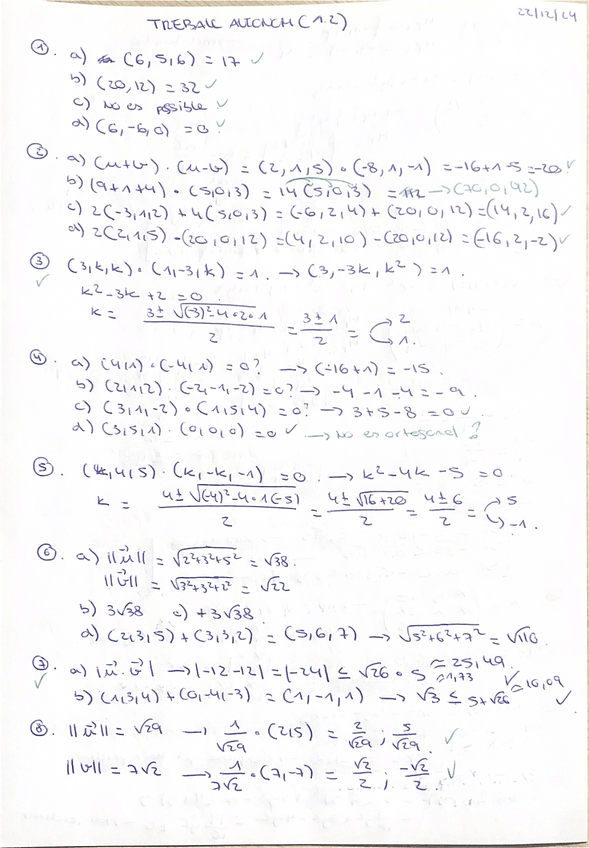 22/12/24
TREBALL AUTÒNOM (1.2)
① a) (6,5,6) = 17 ✓
b) (20,12) = 32 ✓
c) No es possible ✓
d) (6,-6,0) = 0 ✓
② a) (u+v) · (u-v) = (2,1,5) · (-8,1,-1) = -16+1-5 = -20 ✓
b) (9+1+4) · (5,0,3) = 14(5,0,3) = → (70,0,92)
c) 2(-3,1,2) + 4(5,0,3) = (-6,2,4) + (20,0,12) = (14,2,16) ✓
d) 2(2,1,5) - (20,0,12) = (4,2,10) - (20,0,12) = (-16,2,-2) ✓
③ (3,k,k) · (1,-3,k) = 1. → (3,-3k,k²) = 1.
✓ k² - 3k + 2 = 0.
k = (3 ± √((-3)²-4·2·1))/2 = (3 ± 1)/2 = 2 1.
④ a) (4,1) · (-4,1) = 0? → (-16+1) = -15.
b) (2,1,2) · (-2,-1,-2) = 0? → -4-1-4 = -9.
c) (3,1,-2) · (1,5,4) = 0? → 3+5-8 = 0 ✓.
d) (3,5,1) · (0,0,0) = 0 ✓ → No es ortogonal ?
⑤ (k,4,5) · (k,-k,-1) = 0. → k²-4k-5 = 0.
k = (4 ± √((-4)²-4·1(-5)))/2 = (4 ± √(16+20))/2 = (4 ± 6)/2 = 5 -1.
⑥ a) ||u⃗|| = √(2²+3²+5²) = √38.
||v⃗|| = √(3²+3²+2²) = √22
b) 3√38 c) +3√38
d) (2,3,5) + (3,3,2) = (5,6,7) → √(5²+6²+7²) = √110
⑦ a) |u⃗ · v⃗| → |-12-12| = |-24| ≤ √26 · 5 ≈ 25,49. ✓
✓ b) (1,3,4) + (0,-4,-3) = (1,-1,1) → √3 ≈ 1,73 ≤ 5+√26 ≈ 10,09 ✓
⑧ ||u⃗|| = √29 → 1/√29 · (2,5) = 2/√29 ; 5/√29. ✓
||v|| = 7√2 → 1/7√2 · (7,-7) = √2/2 ; -√2/2. ✓